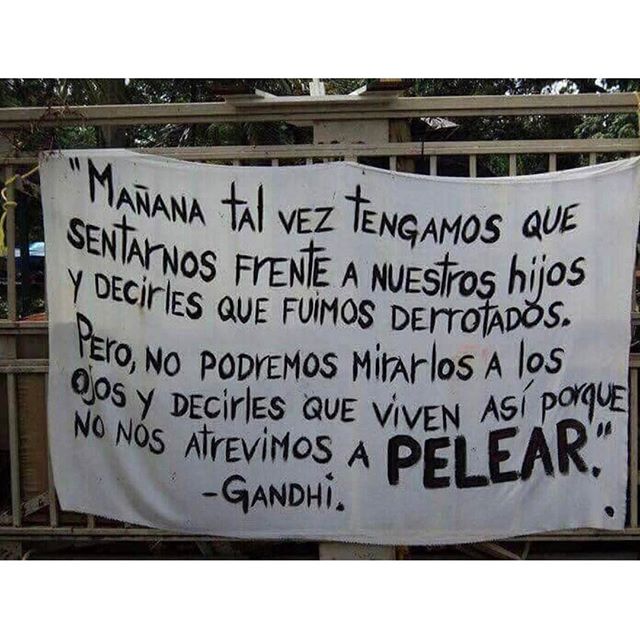 "MAÑANA tAl VEZ TENGAMOS QUE
SENtArNOS FrENTE A NUEStrOS hijOS
Y DECIrlES QUE FUIMOS DErrOtADOS.
PErO, NO PODrEMOS MirArlOS A LOS
OjOS Y DECIrlES QUE ViVEN ASí pOrqUE
NO NOS AtrEVIMOS A PELEAR."
-GANDHi.